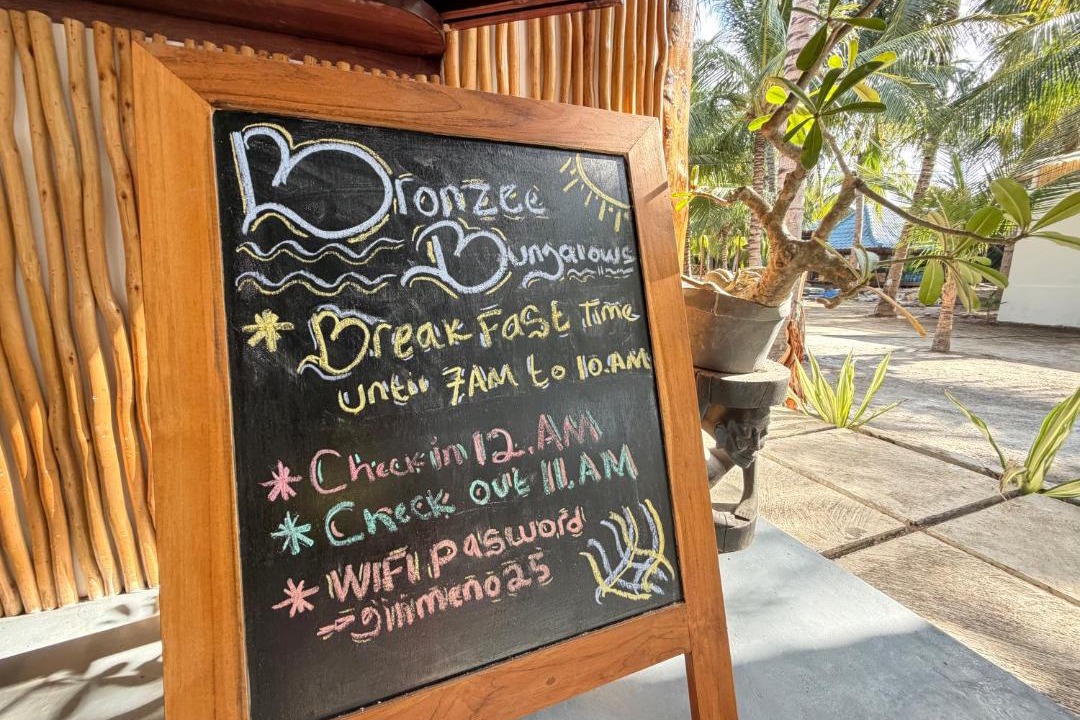 Bronzee
Bungalows
* Breakfast Time
until 7AM to 10.AM
* Check in 12.AM
* Check out 11.AM
* WIFI Pasword
→ gilimeno25